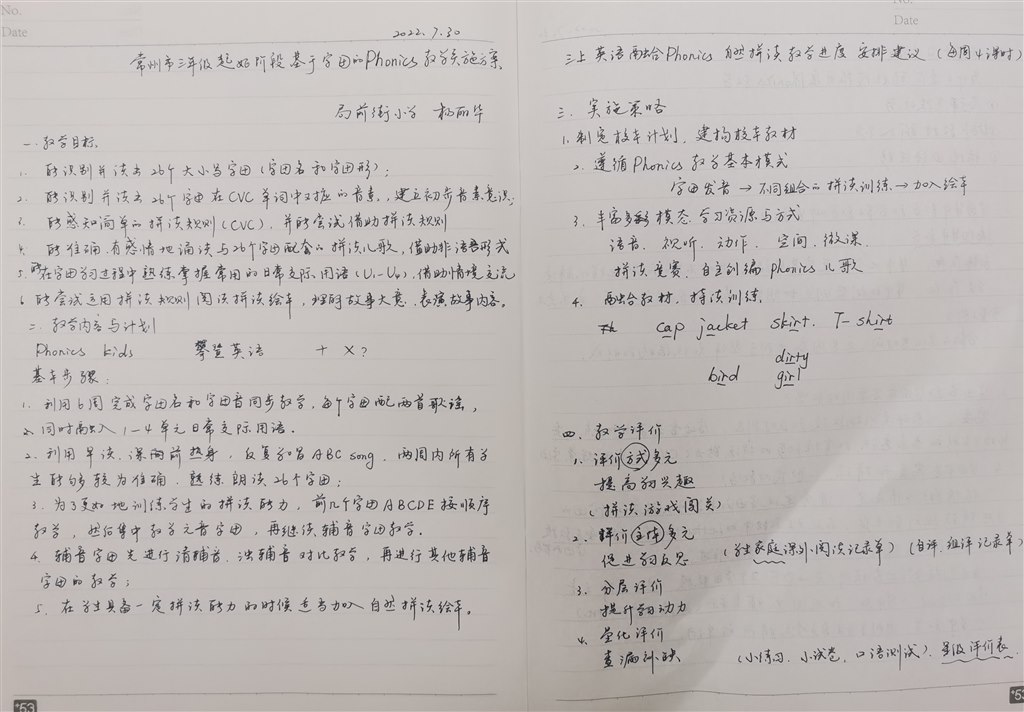 No.
Date
2022.7.30
常州市三年级起始阶段基于字母的Phonics教学实施方案
局前街小学 杨丽华
一. 教学目标
1. 能识别并读出26个大小写字母(字母名和字母形);
2. 能识别并读出26个字母在CVC单词中对应的音素,建立初步音素意识;
3. 能感知简单的拼读规则(CVC),并能尝试借助拼读规则
4. 能准确、有感情地诵读与26个字母配套的拼读儿歌,借助非语言形式
5. 能在字母学习过程中熟练掌握常用的日常交际用语(U1-U8),借助情境交流
6. 能尝试运用拼读规则阅读拼读绘本,理解故事大意、表演故事内容。
二. 教学内容与计划
Phonics kids 攀登英语 + x?
基本步骤:
1. 利用6周完成字母名和字母音同步教学,每个字母配两首歌谣,
2. 同时融入1-4单元日常交际用语。
2. 利用早读、课两前热身,反复和唱ABC song. 两周内所有学
生能够较为准确、熟练朗读26个字母;
3. 为了更好地训练学生的拼读能力,前几个字母ABCDE按顺序
教学,然后集中教学元音字母,再继续辅音字母教学.
4. 辅音字母先进行清辅音、浊辅音对比教学,再进行其他辅音
字母的教学;
5. 在学生具备一定拼读能力的时候适当加入自然拼读绘本。
*53
Date
三上英语融合Phonics自然拼读教学进度安排建议(每周4课时)
三. 实施策略
1. 制定校本计划,建构校本教材
2. 遵循Phonics教学基本模式
字母发音→不同组合的拼读训练→加入绘本
3. 丰富多彩模态学习资源与方式
语音、视听、动作、空间、微课、
拼读竞赛、自主创编phonics儿歌
4. 融合教材,持续训练
cap jacket skirt. T-shirt
dirty
bird girl
四. 教学评价
1. 评价方式多元
提高学习兴趣
(拼读游戏闯关)
2. 评价主体多元
促进学习反思 (学生家庭课外阅读记录单)(自评、组评记录单)
3. 分层评价
提升学习动力
4. 量化评价
查漏补缺 (小练习、小试卷、口语测试)、星级评价表.
*53